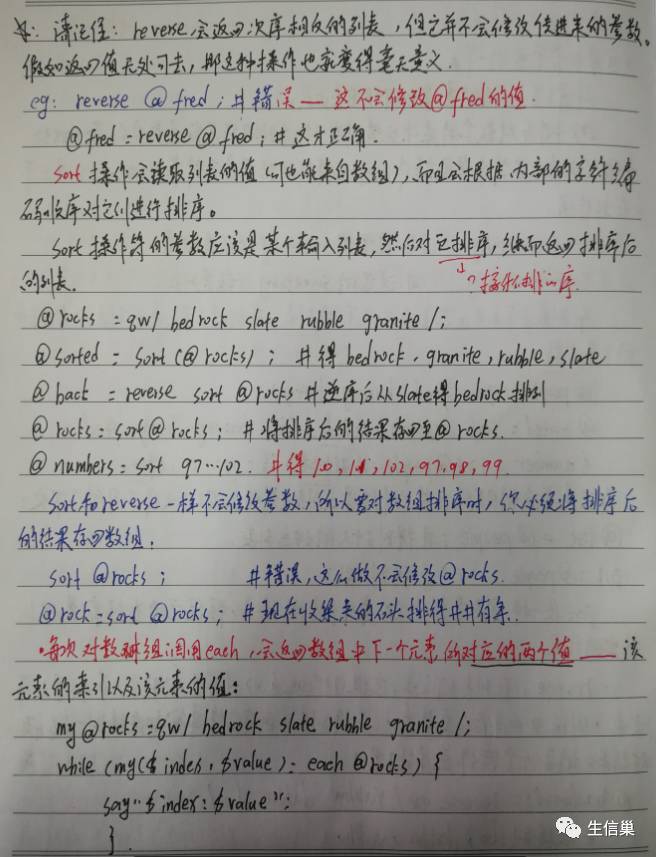 注: 请记住: reverse 会返回次序相反的列表, 但它并不会修改传进来的参数。
假如返回值无处可去, 那这种操作也就变得毫无意义.
eg: reverse @fred; #错误 — 这不会修改@fred的值.
@fred = reverse @fred; #这才正确.
sort 操作会读取列表的值(可能来自数组), 而且会根据内部的字符编
码顺序对它们进行排序。
sort 操作符的参数应该是某个输入列表, 然后对它排序, 继而返回排序后
的列表.
? 按什么排的序.
@rocks = qw/ bedrock slate rubble granite /;
@sorted = sort (@rocks); #得 bedrock, granite, rubble, slate
@back = reverse sort @rocks #逆序后从slate得bedrock排列
@rocks = sort @rocks; #将排序后的结果存回至@rocks.
@numbers = sort 97…102. #得 10, 101, 102, 97, 98, 99.
sort和reverse一样不会修改参数, 所以需对数组排序时, 你必须将排序后
的结果存回数组.
sort @rocks; #错误, 这么做不会修改@rocks.
@rock = sort @rocks; #现在收集来的石头排得井井有条.
·每次对数组调用each, 会返回数组中下一个元素所对应的两个值 — 该
元素的索引以及该元素的值:
my @rocks = qw/ bedrock slate rubble granite /;
while (my($index, $value) = each @rocks) {
say "$index: $value";
}.
生信巢